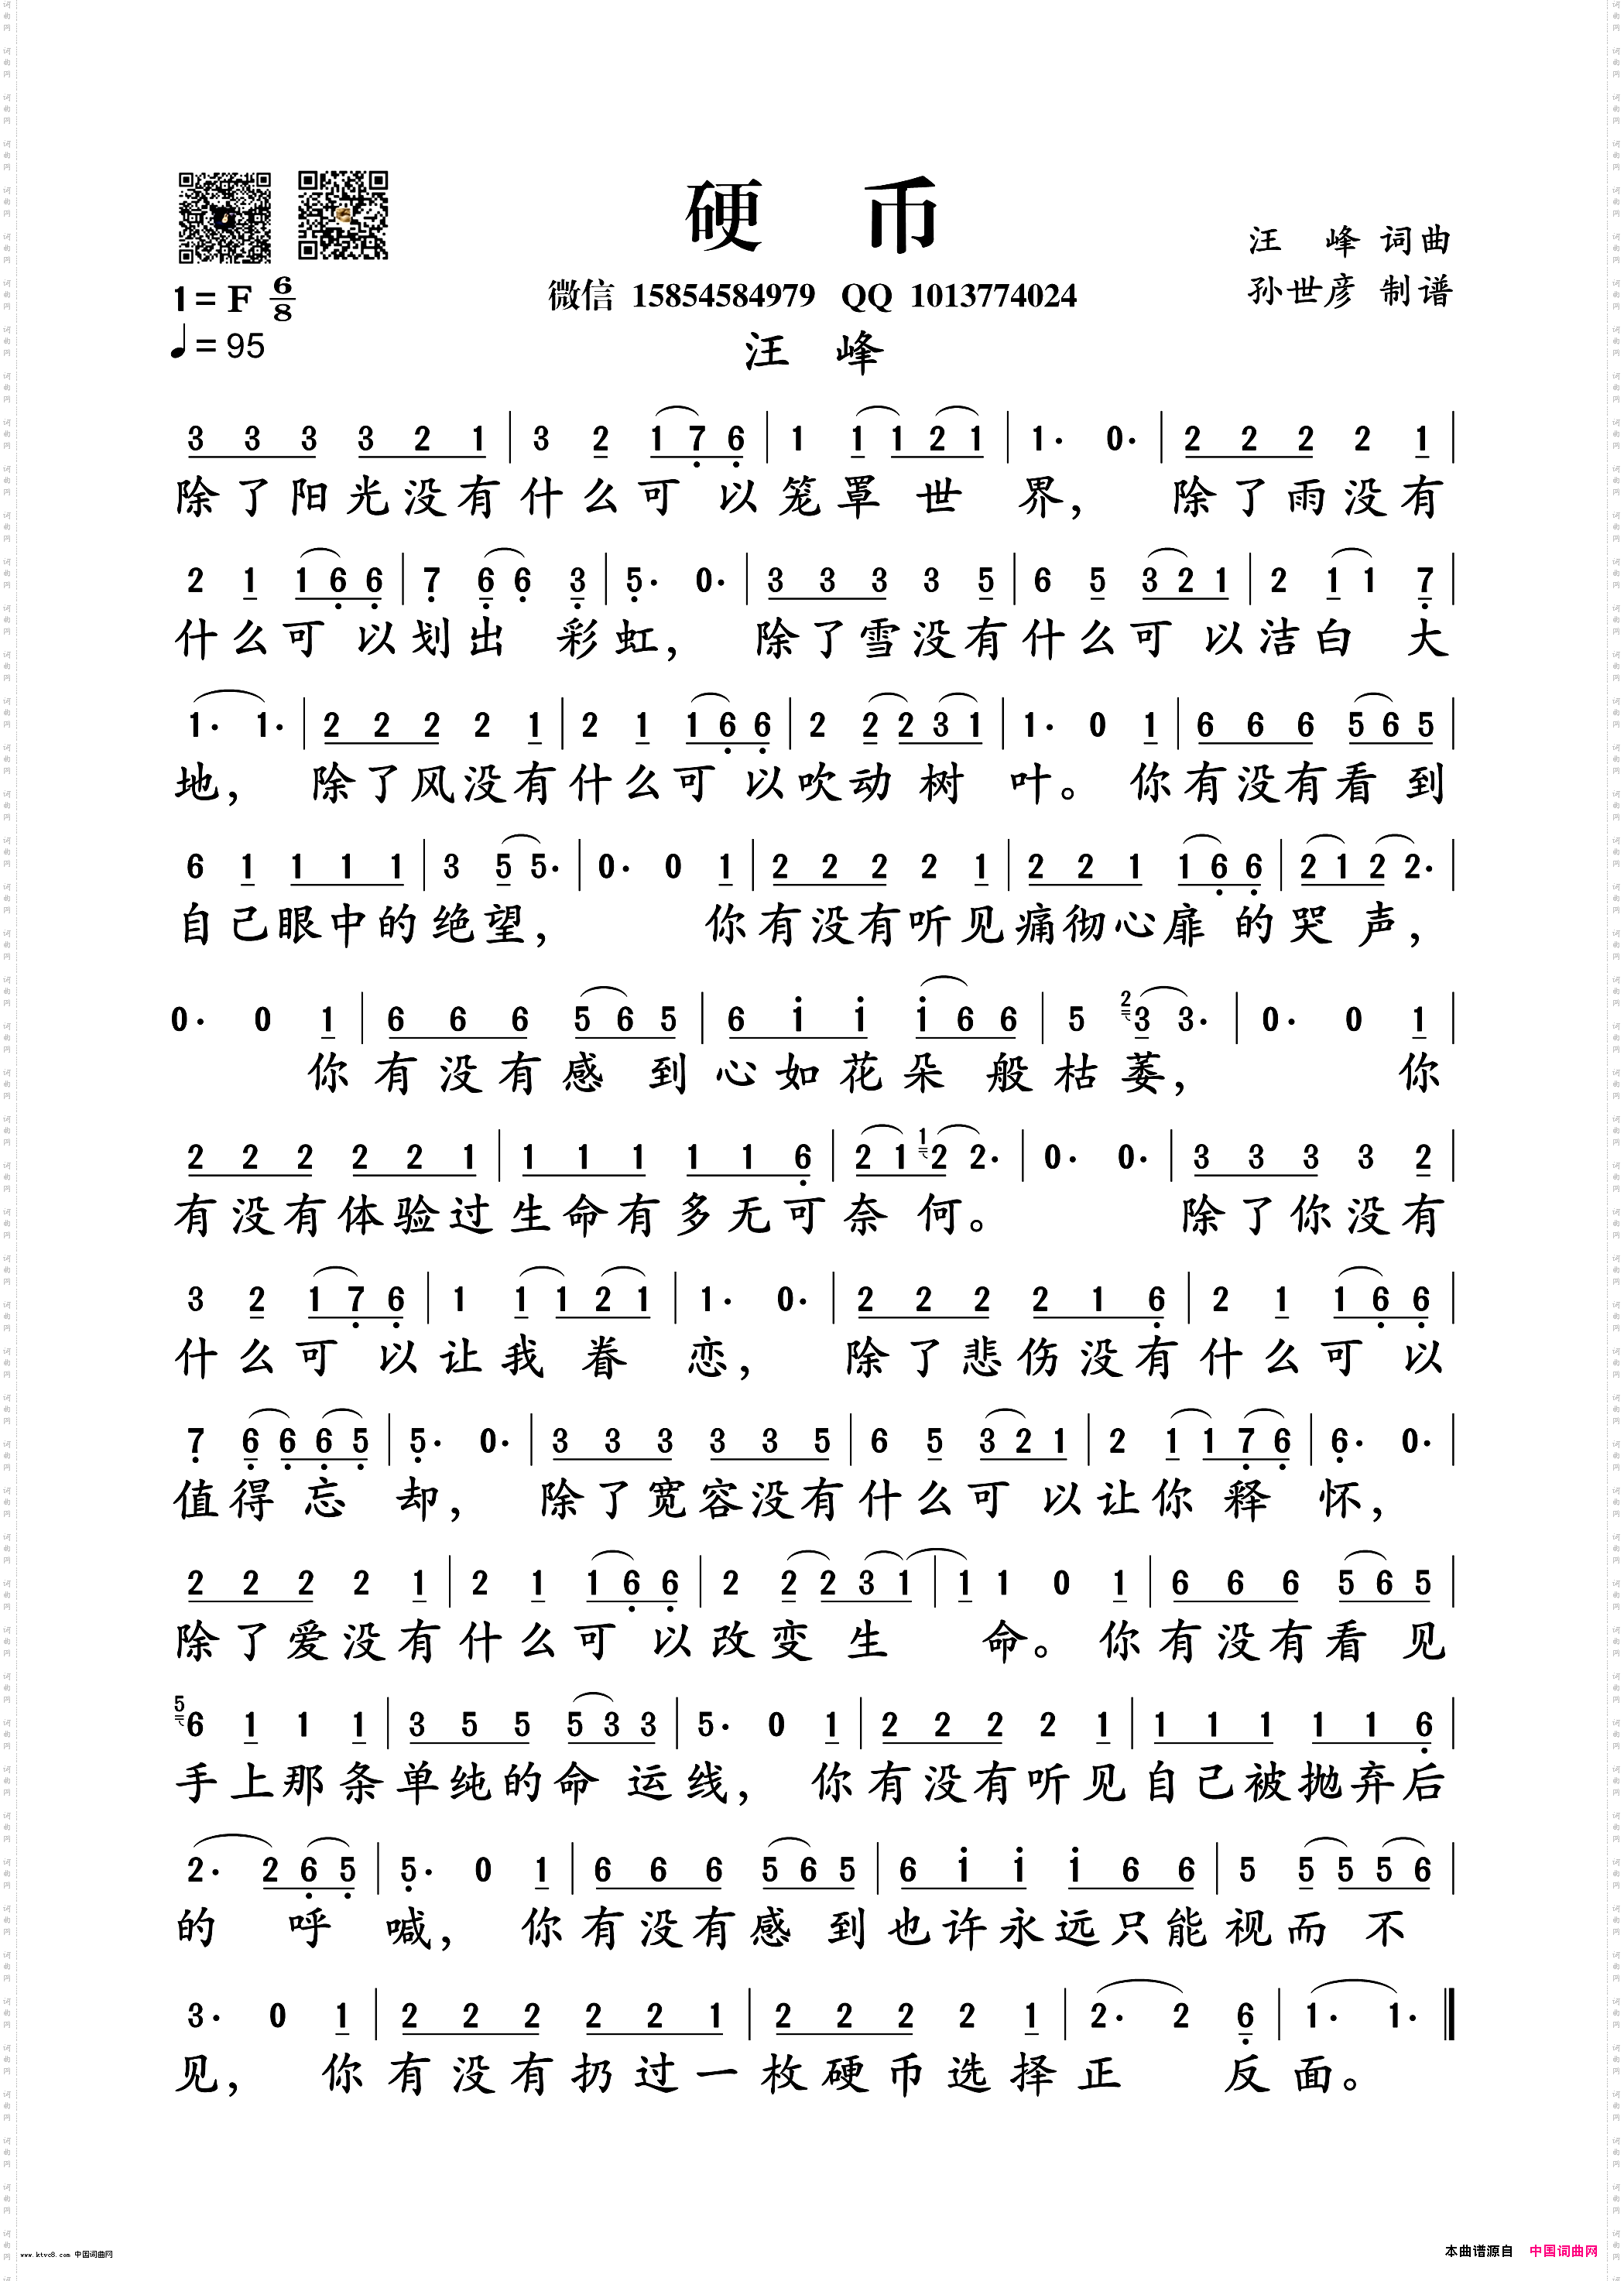 硬 币
汪 峰 词曲
孙世彦 制谱
1= F 6/8
微信 15854584979 QQ 1013774024
♩= 95
汪 峰
3 3 3 3 2 1 | 3 2 1 7 6 | 1 1 1 2 1 | 1· 0· | 2 2 2 2 1 |
除了阳光没有什么可 以笼罩世 界， 除了雨没有
2 1 1 6 6 | 7 6 6 3 | 5· 0· | 3 3 3 3 5 | 6 5 3 2 1 | 2 1 1 7 |
什么可 以划出 彩虹， 除了雪没有什么可 以洁白 大
1· 1· | 2 2 2 2 1 | 2 1 1 6 6 | 2 2 2 3 1 | 1· 0 1 | 6 6 6 5 6 5 |
地， 除了风没有什么可 以吹动 树 叶。 你有没有看 到
6 1 1 1 1 | 3 5 5· | 0· 0 1 | 2 2 2 2 1 | 2 2 1 1 6 6 | 2 1 2 2· |
自己眼中的绝望， 你有没有听见痛彻心扉 的哭 声，
0· 0 1 | 6 6 6 5 6 5 | 6 i i i 6 6 | 5 2 3 3· | 0· 0 1 |
你有没有感 到心如花朵 般枯萎， 你
2 2 2 2 2 1 | 1 1 1 1 1 6 | 2 1 1 2 2· | 0· 0· | 3 3 3 3 2 |
有没有体验过生命有多无可奈 何。 除了你没有
3 2 1 7 6 | 1 1 1 2 1 | 1· 0· | 2 2 2 2 1 6 | 2 1 1 6 6 |
什么可 以让我 眷 恋， 除了悲伤没有什么可 以
7 6 6 6 5 | 5· 0· | 3 3 3 3 3 5 | 6 5 3 2 1 | 2 1 1 7 6 | 6· 0· |
值得 忘 却， 除了宽容没有什么可 以让你 释 怀，
2 2 2 2 1 | 2 1 1 6 6 | 2 2 2 3 1 | 1 1 0 1 | 6 6 6 5 6 5 |
除了爱没有什么可 以改变 生 命。 你有没有看 见
5 6 1 1 1 | 3 5 5 5 3 3 | 5· 0 1 | 2 2 2 2 1 | 1 1 1 1 1 6 |
手上那条单纯的命 运线， 你有没有听见自己被抛弃后
2· 2 6 5 | 5· 0 1 | 6 6 6 5 6 5 | 6 i i i 6 6 | 5 5 5 5 6 |
的 呼 喊， 你有没有感 到也许永远只能视而 不
3· 0 1 | 2 2 2 2 2 1 | 2 2 2 2 1 | 2· 2 6 | 1· 1· ‖
见， 你有没有扔过一枚硬币选择正 反面。
www.ktvc8.com 中国词曲网
本曲谱源自 中国词曲网